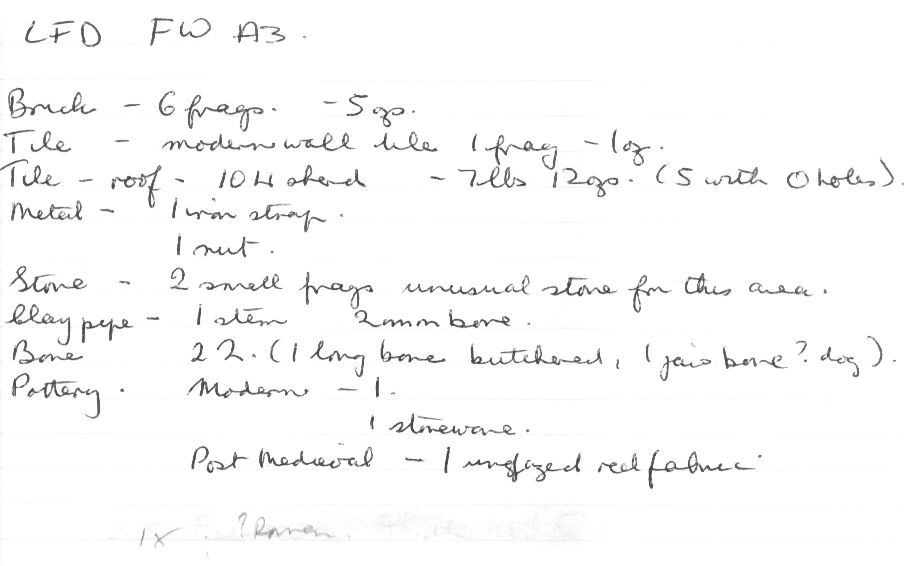 LFD FW A3.
Brick - 6 frags. - 5 ozs.
Tile - modern wall tile 1 frag - 1 oz.
Tile - roof - 104 sherd - 7 lbs 12 ozs. (5 with 0 holes).
Metal - 1 iron strap.
1 nut.
Stone - 2 small frags unusual stone for this area.
Clay pipe - 1 stem 2mm bore.
Bone 22. (1 long bone butchered, 1 jaw bone ? dog).
Pottery. Modern - 1.
1 stoneware.
Post Medieval - 1 unglazed red fabric
1x ? Roman.